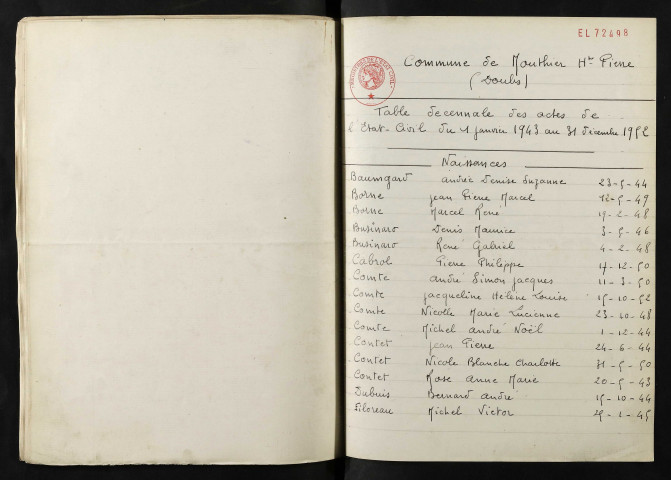 EL 72498
Commune de Mouthier Hte Pierre
(Doubs)
Table decennale des actes de
l'Etat-Civil du 1 janvier 1943 au 31 décembre 1952
Naissances
Baumgard andrée Denise Suzanne 23-5-44
Borne jean Pierre Marcel 12-5-49
Borne Marcel René 19-2-48
Businaro Denis Maurice 3-5-46
Businaro René Gabriel 4-2-48
Cabrol Pierre Philippe 17-12-50
Comte andré Simon jacques 11-3-50
Comte jacqueline Hélène Louise 15-10-52
Comte Nicolle Marie Lucienne 23-10-48
Comte Michel andré Noël 1-12-44
Contet jean Pierre 24-6-44
Contet Nicole Blanche Charlotte 31-5-50
Contet Rose Anne Marie 20-5-43
Dubuis Bernard andré 15-10-44
Filoreau Michel Victor